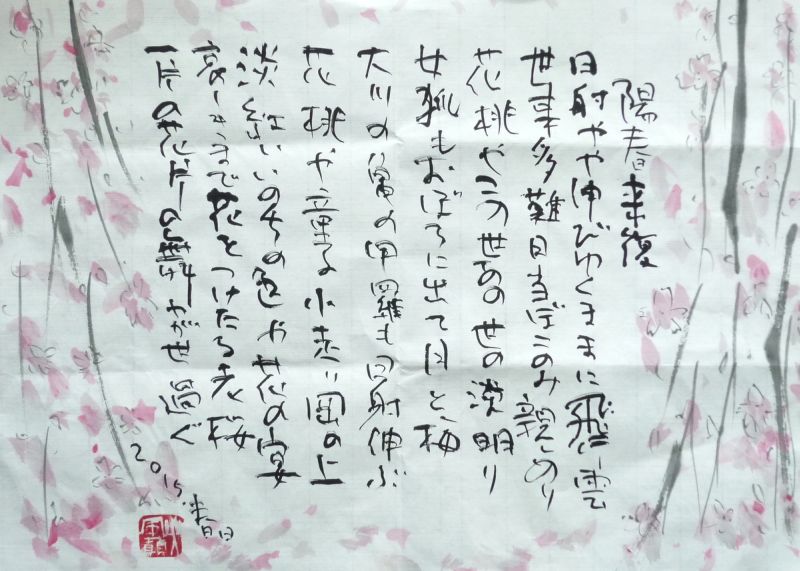 陽春来復
日射やや伸びゆくままに飛行雲
世事多難日当ぼこのみ親しめり
花桃やこの世あの世の淡明り
女狐もおぼろに出て月と梅
大川の亀の甲羅も日射伸ぶ
花桃や童る小走り岡の上
淡紅いいのちの色や花の宴
哀しきまで花をつけたる老桜
一片の花片の舞 過ぐ
2015.春日